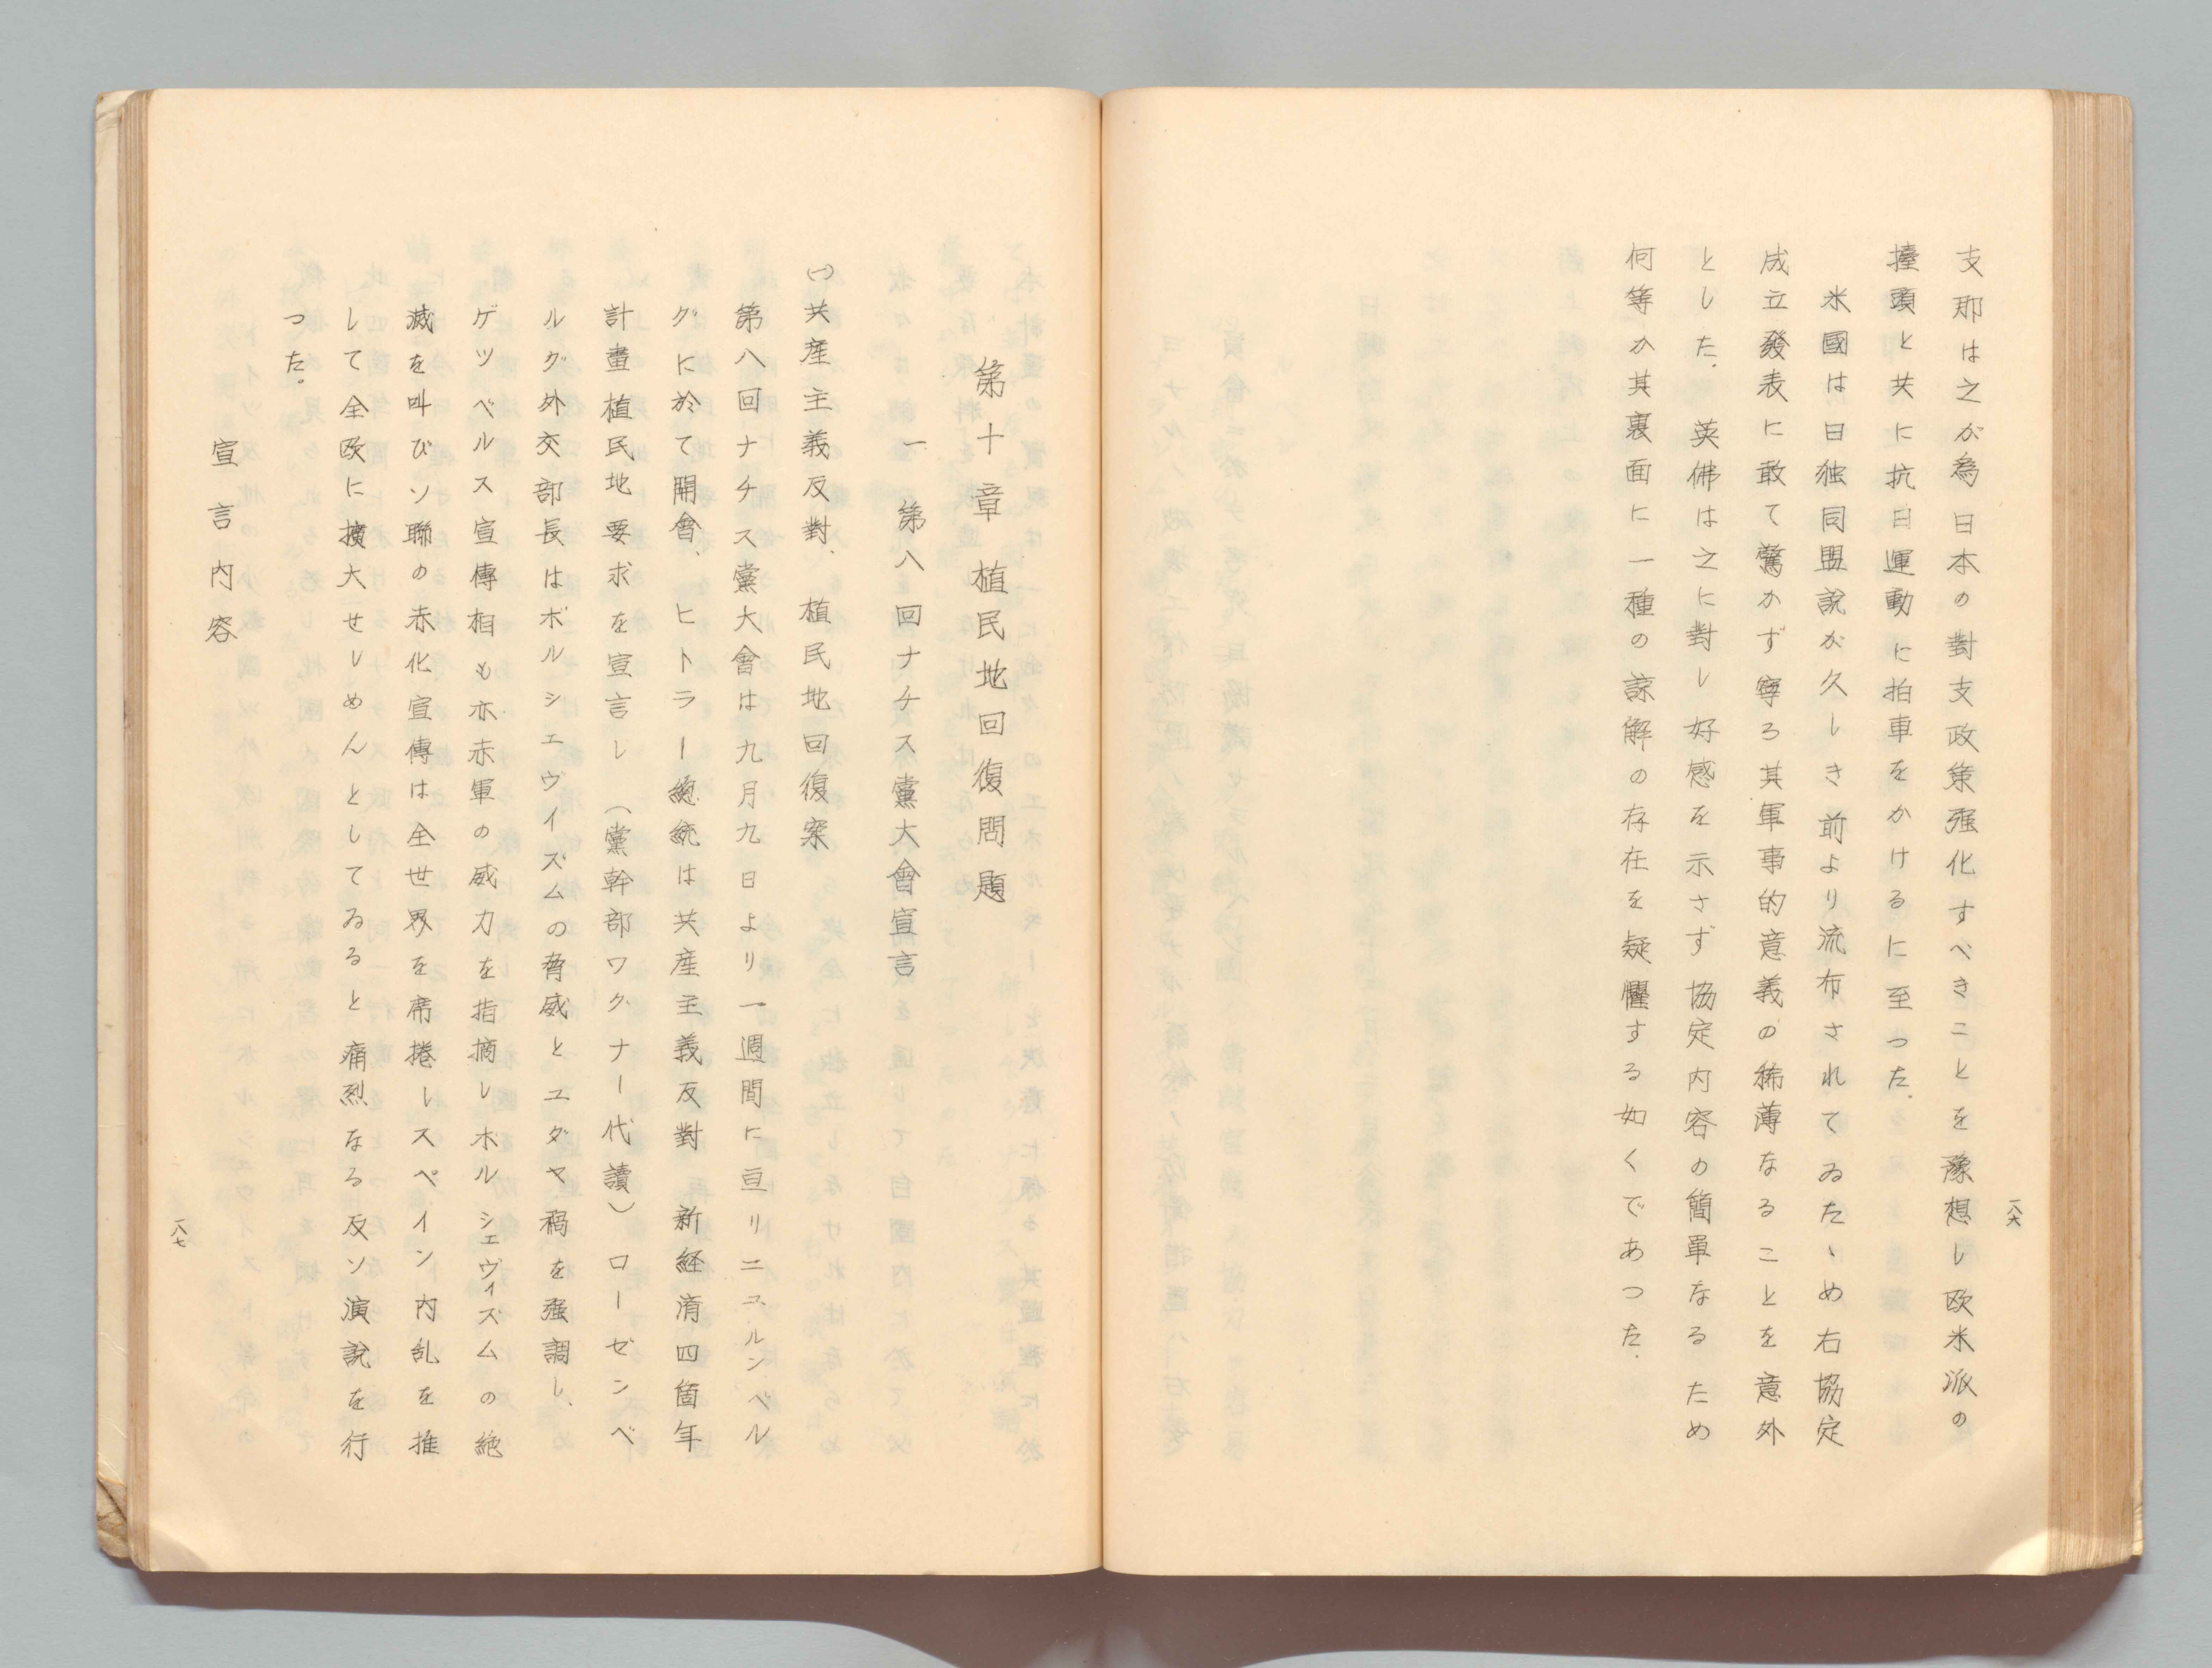 支那は之が為日本の對支政策强化すべきことを豫想し欧米派の
擡頭と共に抗日運動に拍車をかけるに至つた.
米國は日独同盟說が久しき前より流布されてゐたゝめ右協定
成立發表に敢て驚かず寧ろ其軍事的意義の稀薄なることを意外
とした. 英佛は之に對し好感を示さず協定內容の簡單なるため
何等か其裏面に一種の諒解の存在を疑懼する如くであつた.
一八六
第十章 植民地回復問題
一 第八回ナチス黨大會宣言
(一)共産主義反對、植民地回復案
第八回ナチス黨大會は九月九日より一週間に亘りニユルンベル
グに於て開會、ヒトラー總統は共産主義反對 新経済四箇年
計畫植民地要求を宣言し (黨幹部ワグナー代讀) ローゼンベ
ルグ外交部長はボルシエヴイズムの脅威とユダヤ禍を强調し、
ゲツベルス宣傳相も亦赤軍の威力を指摘しボルシエヴイズムの絶
滅を叫びソ聯の赤化宣傳は全世界を席捲しスペイン内乱を推
して全欧に擴大せしめんとしてゐると痛烈なる反ソ演說を行
つた。
宣言内容
一八七